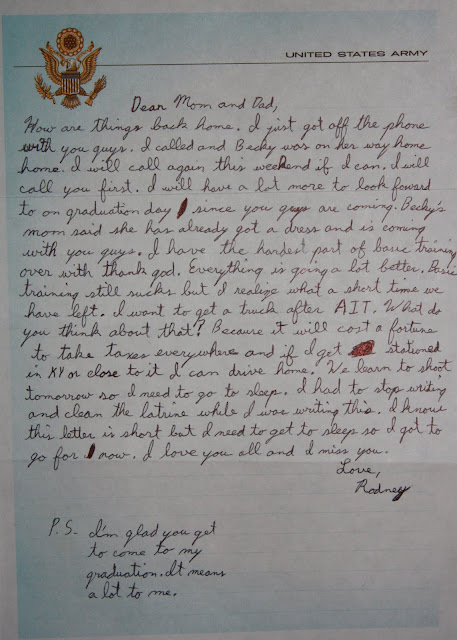 UNITED STATES ARMY
Dear Mom and Dad,
How are things back home. I just got off the phone
with you guys. I called and Becky was on her way home
home. I will call again this weekend if I can. I will
call you first. I will have a lot more to look foward
to on graduation day since you guys are coming. Becky's
mom said she has already got a dress and is coming
with you guys. I have the hardest part of basic training
over with thank god. Everything is going a lot better. Basic
training still sucks but I realize what a short time we
have left. I want to get a truck after AIT. What do
you think about that? Because it will cost a fortune
to take taxes everywhere and if I get stationed
in KY or close to it I can drive home. We learn to shoot
tomorrow so I need to go to sleep. I had to stop writing
and clean the latrine while I was writing this. I know
this letter is short but I need to get to sleep so I got to
go for now. I love you all and I miss you.
Love,
Rodney
P.S. I'm glad you get
to come to my
graduation. It means
a lot to me.